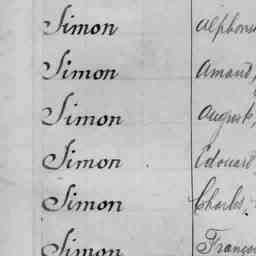 Simon Alphonse
Simon Amand,
Simon Auguste,
Simon Edouard,
Simon Charles
Simon